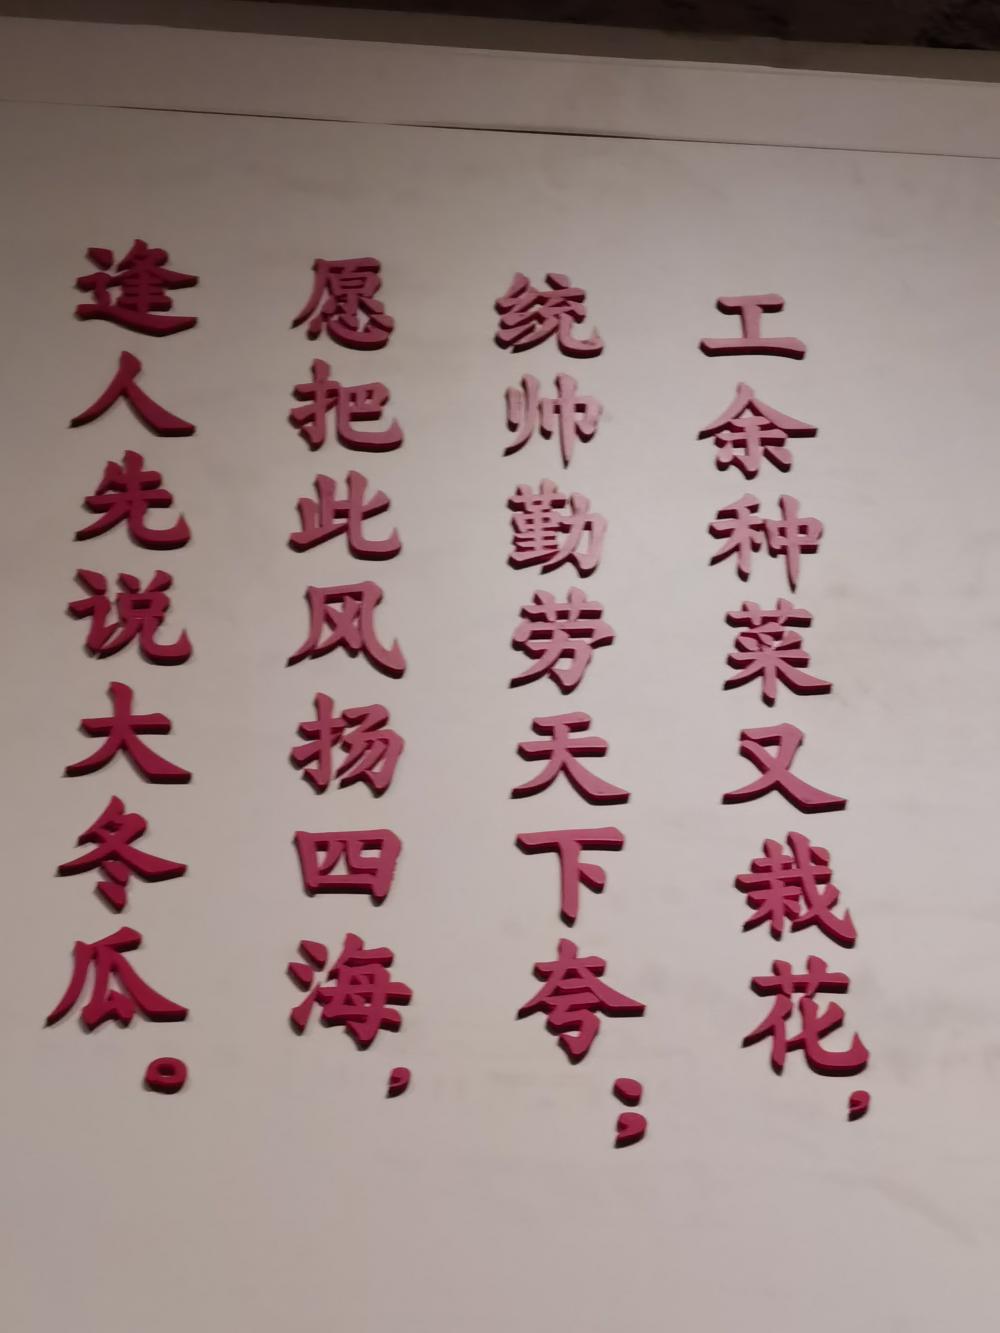 工余种菜又栽花，
统帅勤劳天下夸；
愿把此风扬四海，
逢人先说大冬瓜。